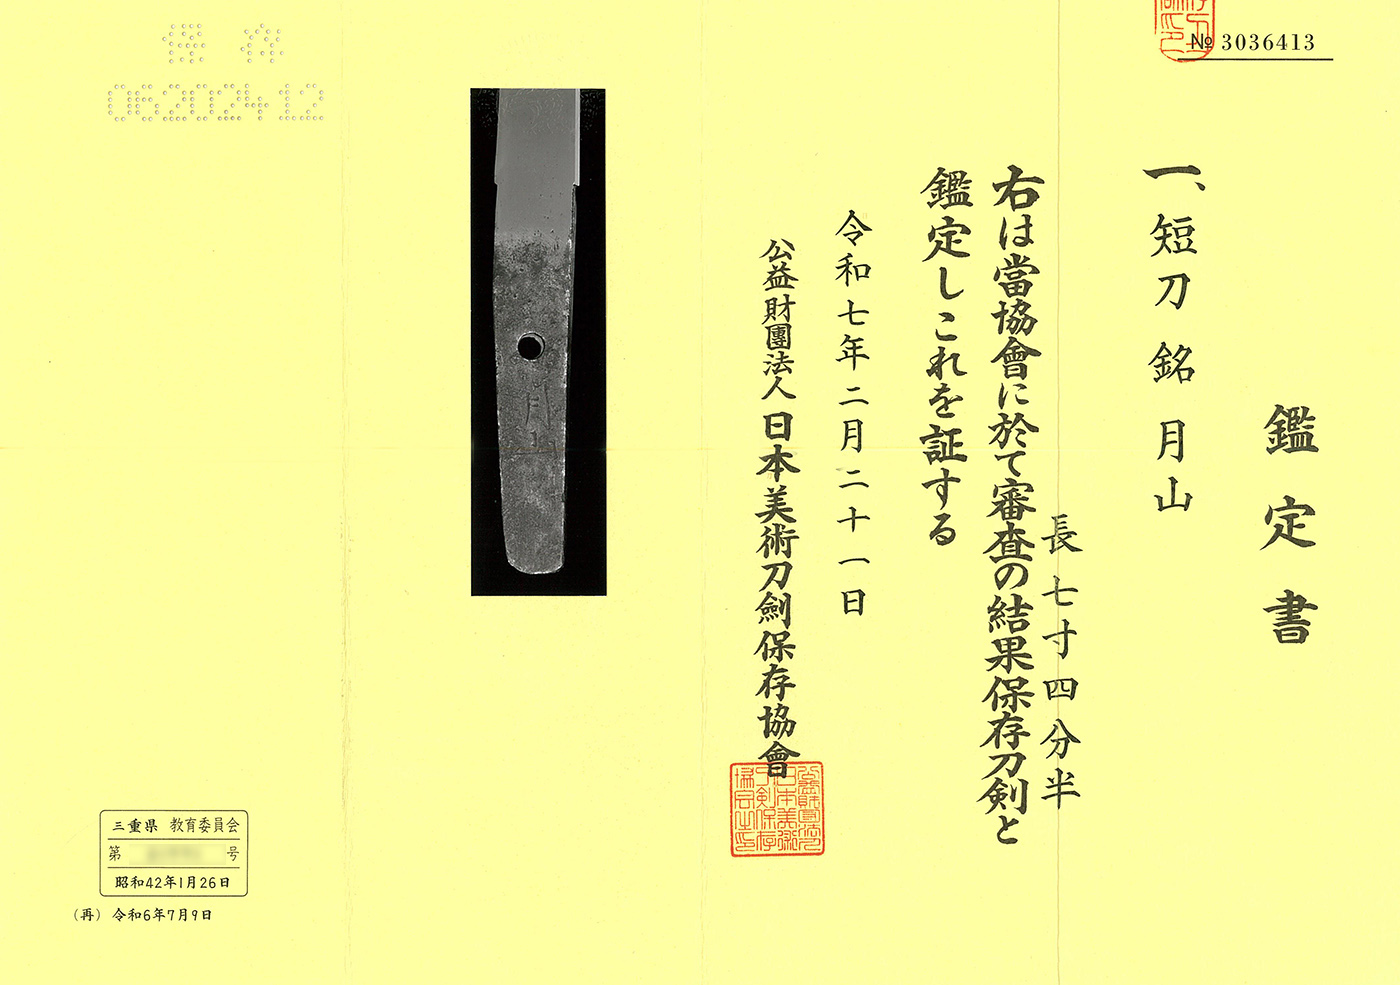 № 3036413
鑑定書
一、短刀 銘 月山
長七寸四分半
右は當協會に於て審査の結果保存刀剣と
鑑定しこれを証する
令和七年二月二十一日
公益財團法人日本美術刀劍保存協會
保存
0620241​2
月
三重県 教育委員会
第 号
昭和42年1月26日
(再) 令和6年7月9日